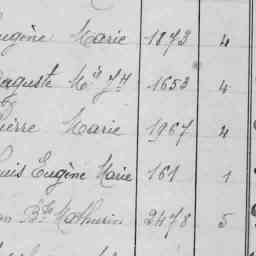 ugène Marie 1873 4
auguste Mie Jh 1653 4
ierre Marie 1967 4
ouis Eugène Marie 161 1
an Bte Mathurin 2478 5